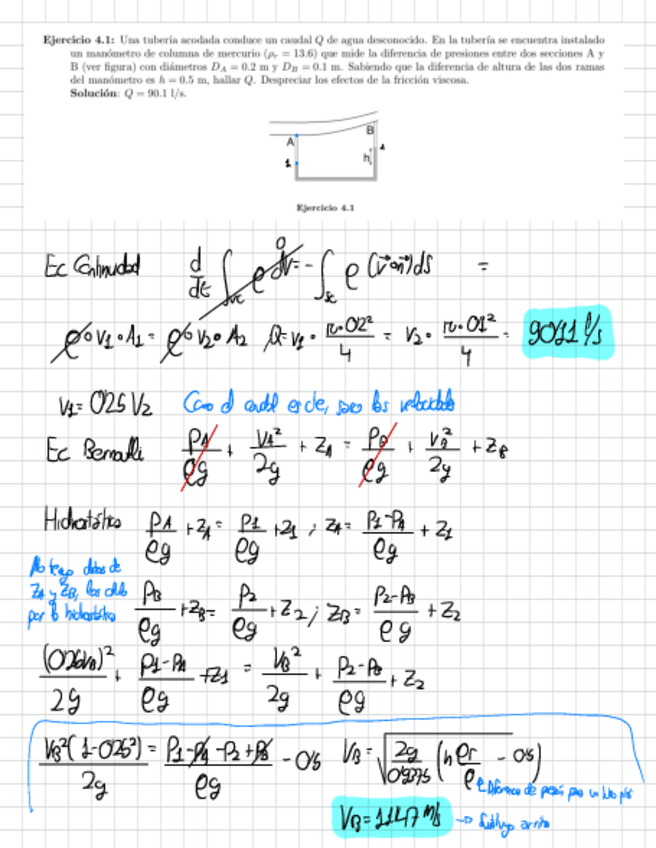 Ejercicio 4.1: Una tubería acodada conduce un caudal Q de agua desconocido. En la tubería se encuentra instalado
un manómetro de columna de mercurio (ρr = 13.6) que mide la diferencia de presiones entre dos secciones A y
B (ver figura) con diámetros DA = 0.2 m y DB = 0.1 m. Sabiendo que la diferencia de altura de las dos ramas
del manómetro es h = 0.5 m, hallar Q. Despreciar los efectos de la fricción viscosa.
Solución: Q = 90.1 l/s.
A
B
1
2
h
Ejercicio 4.1
Ec Continuidad d/dt ∫vc ρ dV = 0 - ∫sc ρ (v·n) ds =
ρ·V1·A1 = ρ·V2·A2 Q = V1 · π·0'2²/4 = V2 · π·0'1²/4 = 90'11 l/s
V1 = 0'25 V2 Como el caudal es cte, saco las velocidades
Ec Bernoulli PA/ρg + VA²/2g + ZA = PB/ρg + VB²/2g + ZB
Hidrostática PA/ρg + ZA = P1/ρg + Z1 ; ZA = P1-PA/ρg + Z1
No tengo datos de
ZA y ZB, los
por la hidrostática
PB/ρg + ZB = P2/ρg + Z2 ; ZB = P2-PB/ρg + Z2
(0'25VB)²/2g + P1-PA/ρg + Z1 = VB²/2g + P2-PB/ρg + Z2
VB²(1-0'25²)/2g = P1-PA-P2+PB/ρg - 0'5 VB = √(2g/0'9375 (h ρr/ρ - 0'5))
Diferencia de
VB = 11'47 m/s → Sustituyo arriba